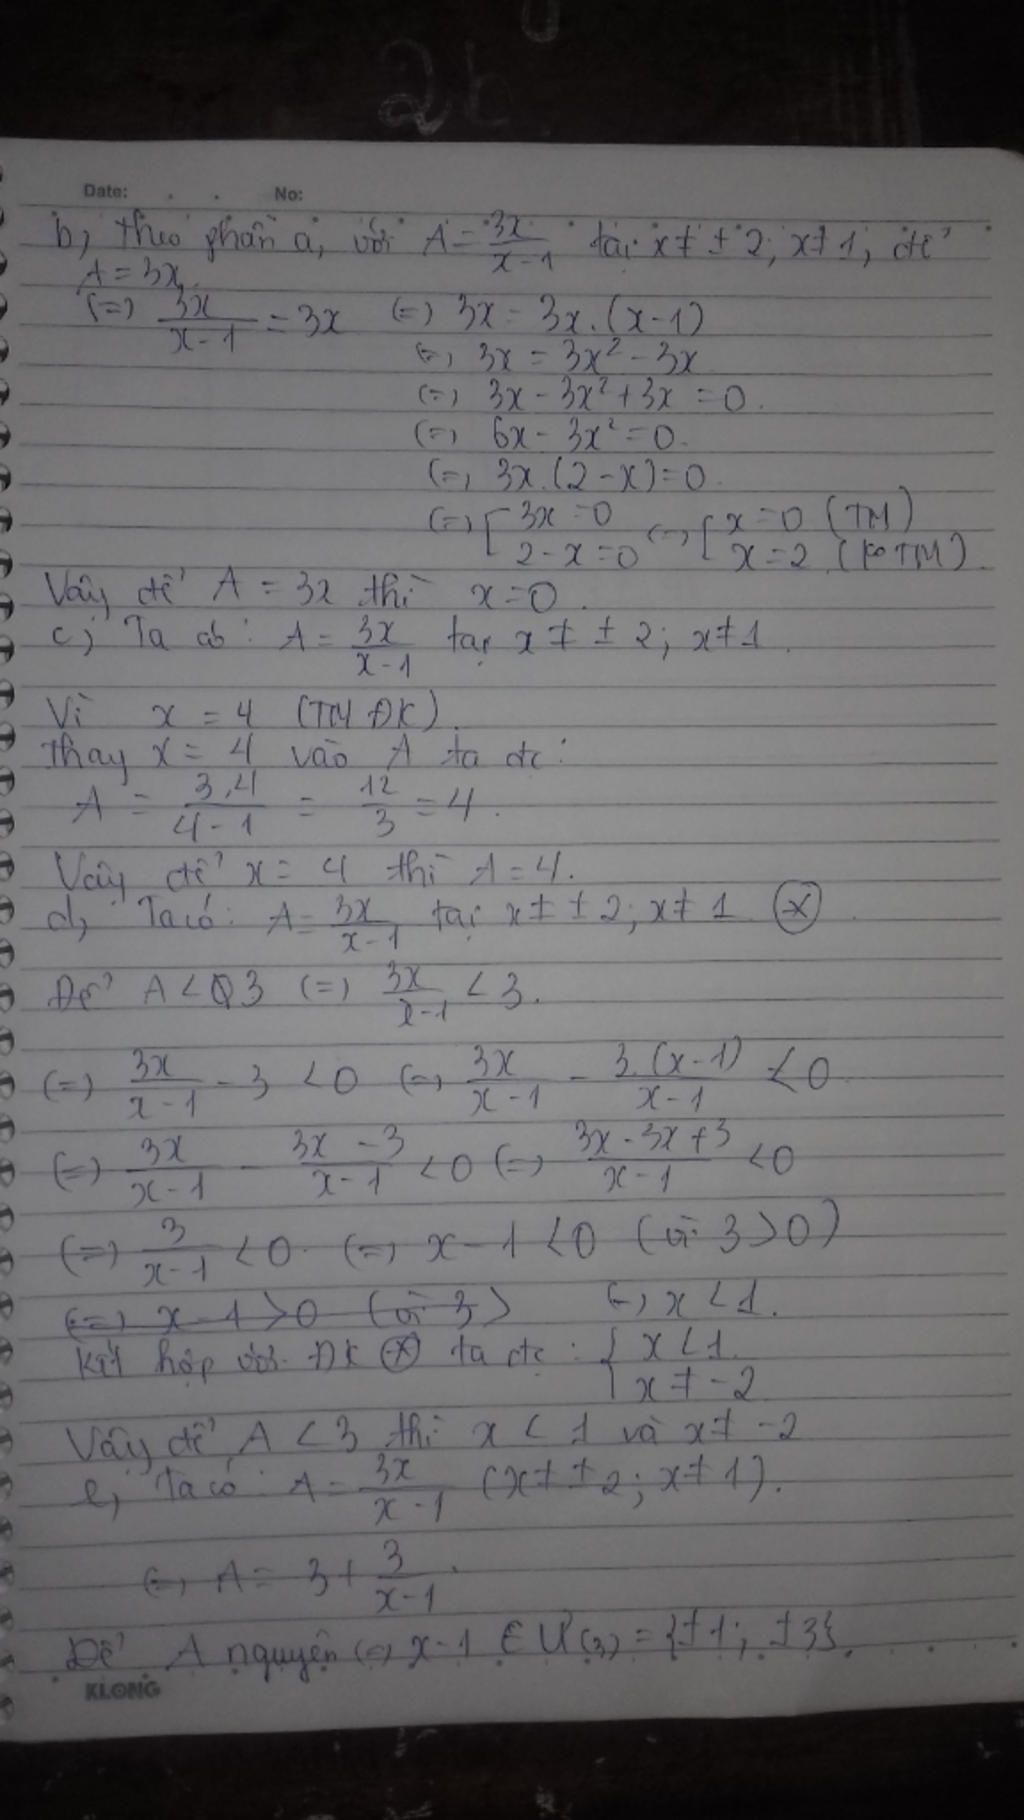 26
Date: . . No:
b, theo phần a, với A = 3x/(x-1) tại x ≠ ± 2; x ≠ 1, để
A = 3x
(=) 3x/(x-1) = 3x (=) 3x = 3x.(x-1)
(=) 3x = 3x² - 3x
(=) 3x - 3x² + 3x = 0.
(=) 6x - 3x² = 0.
(=) 3x.(2-x) = 0.
(=) [ 3x = 0 (=) [ x = 0 (TM)
2-x = 0 x = 2 (ko TM).
Vậy để A = 3x thì x = 0.
c, Ta có: A = 3x/(x-1) tại x ≠ ± 2; x ≠ 1.
Vì x = 4 (TM ĐK).
thay x = 4 vào A ta đc:
A = 3.4/(4-1) = 12/3 = 4.
Vậy để x = 4 thì A = 4.
d, Ta có: A = 3x/(x-1) tại x ≠ ± 2; x ≠ 1 (*).
Để A < 3 (=) 3x/(x-1) < 3.
(=) 3x/(x-1) - 3 < 0 (=) 3x/(x-1) - 3.(x-1)/(x-1) < 0
(=) 3x/(x-1) - (3x-3)/(x-1) < 0 (=) (3x-3x+3)/(x-1) < 0
(=) 3/(x-1) < 0 (=) x-1 < 0 (vì 3 > 0)
(=) x-1 > 0 (vì 3 > (=) x < 1.
Kết hợp với ĐK (*) ta đc: { x < 1
x ≠ -2
Vậy để A < 3 thì x < 1 và x ≠ -2
e, Ta có: A = 3x/(x-1) (x ≠ ± 2; x ≠ 1).
(=) A = 3 + 3/(x-1).
Để A nguyên (=) x-1 ∈ Ư(3) = {±1; ±3}.
KLONG